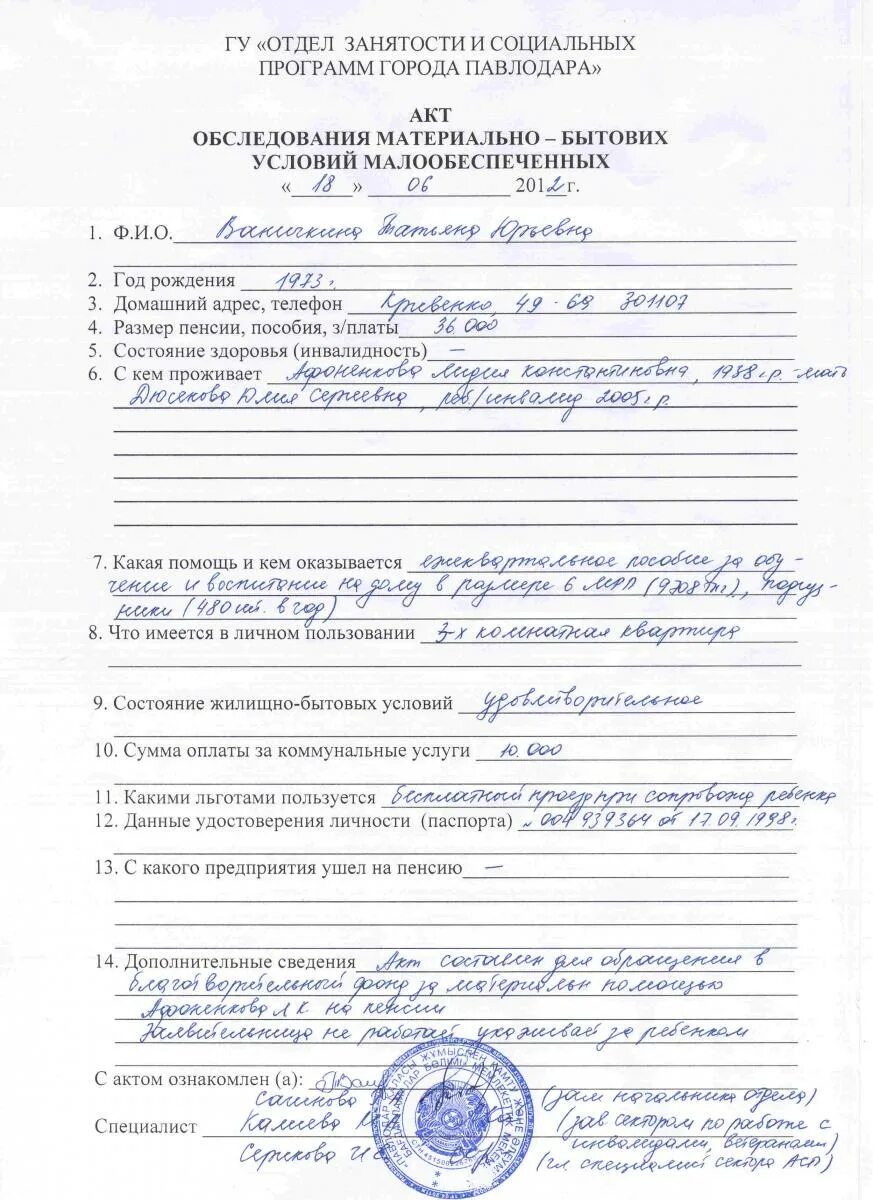 ГУ «ОТДЕЛ ЗАНЯТОСТИ И СОЦИАЛЬНЫХ
ПРОГРАММ ГОРОДА ПАВЛОДАРА»
АКТ
ОБСЛЕДОВАНИЯ МАТЕРИАЛЬНО – БЫТОВИХ
УСЛОВИЙ МАЛООБЕСПЕЧЕННЫХ
« 18 » 06 2012 г.
1. Ф.И.О. Ваничкина Татьяна Юрьевна
2. Год рождения 1973 г.
3. Домашний адрес, телефон Кривенко, 49-69 301107
4. Размер пенсии, пособия, з/платы 36 000
5. Состояние здоровья (инвалидность) —
6. С кем проживает Афоненкова Лидия Константиновна, 1938 г.р. - мать
Дюсекова Юлия Сергеевна, реб./инвалид 2005 г.р.
7. Какая помощь и кем оказывается ежеквартальное пособие за обу-
чение и воспитание на дому в размере 6 МРП (9708 тг), подгуз-
ники (480 шт. в год)
8. Что имеется в личном пользовании 3-х комнатная квартира
9. Состояние жилищно-бытовых условий удовлетворительное
10. Сумма оплаты за коммунальные услуги 10.000
11. Какими льготами пользуется бесплатный проезд при сопровожд ребенка
12. Данные удостоверения личности (паспорта) № 004939364 от 17.09.1998г.
13. С какого предприятия ушел на пенсию —
14. Дополнительные сведения Акт составлен для обращения в
благотворительный фонд за материальн помощью
Афоненкова Л К. на пенсии
Заявительница не работает, ухаживает за ребенком
С актом ознакомлен (а):
Сагинова (зам начальника отдела)
Специалист Калиева (зав сектором по работе с
инвалидами, ветеранами)
Серикова (гл. специалист сектора АСП)